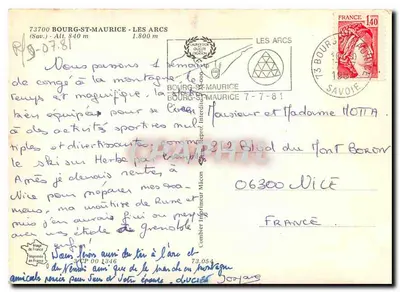 73700 BOURG-ST-MAURICE - LES ARCS
(Sav.) - Alt. 840 m 1.800 m
9-07.81
LES ARCS
BOURG-ST-MAURICE
BOURG-ST-MAURICE 7-7-81
73 BOURG
SAVOIE
FRANCE
1,40
Nous passons 1 semaine
de congé à la montagne. Le
temps est magnifique, la
bien équipée pour se livrer
à des activités sportives mul-
tiples et divertissantes
le ski sur Herbe
Après je devrais rentrer à
Nice pour préparer mes exa-
mens, ma maîtrise de Russe et
mais, j'en aurai fini ou presque
avec un école de Grenoble
enfin
Nous ferons aussi du tir à l'arc et
du Tennis ainsi que de la marche en montagne
amicales pensées pour vous et votre épouse. Lucien
Monsieur et Madame MOTTA
32 Bould du Mont BORON
06300 NICE
FRANCE
Combier Imprimeur Mâcon
Interdite
CP 00 1346
73.054